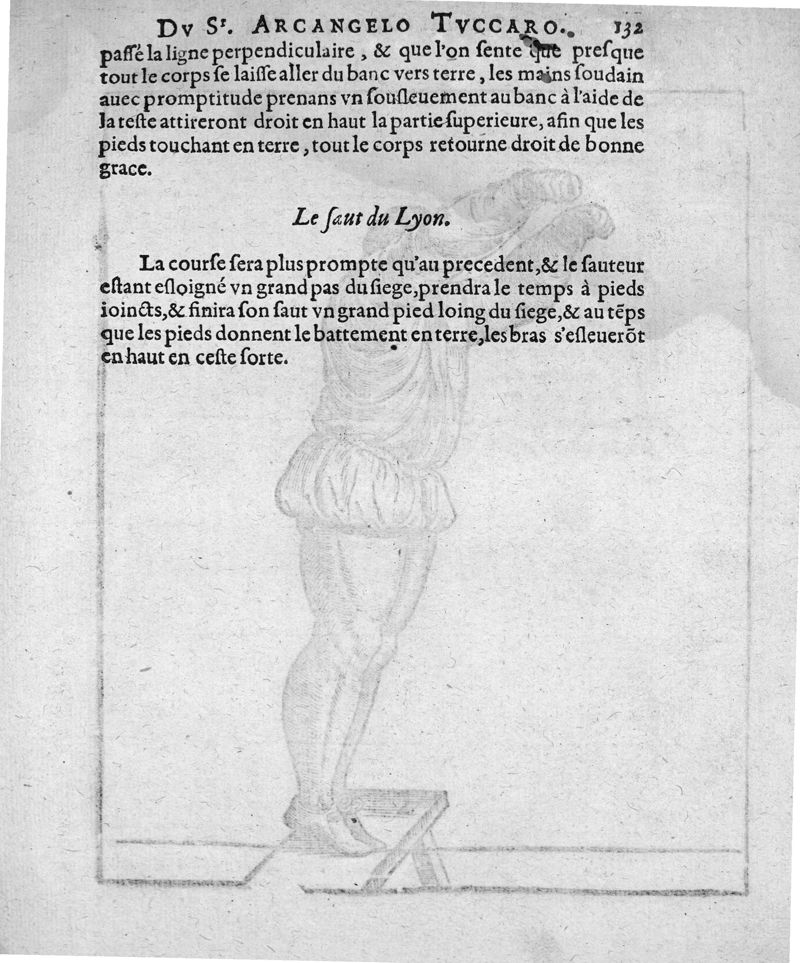 DV Sr. ARCANGELO TVCCARO. 132
paſſé la ligne perpendiculaire, & que l'on ſente que preſque
tout le corps ſe laiſſe aller du banc vers terre, les mains ſoudain
auec promptitude prenans vn ſouſleuement au banc à l'aide de
la teſte attireront droit en haut la partie ſuperieure, afin que les
pieds touchant en terre, tout le corps retourne droit de bonne
grace.
Le ſaut du Lyon.
La courſe ſera plus prompte qu'au precedent, & le ſauteur
eſtant eſloigné vn grand pas du ſiege, prendra le temps à pieds
ioincts, & finira ſon ſaut vn grand pied loing du ſiege, & au tẽps
que les pieds donnent le battement en terre, les bras s'eſleuerõt
en haut en ceſte ſorte.